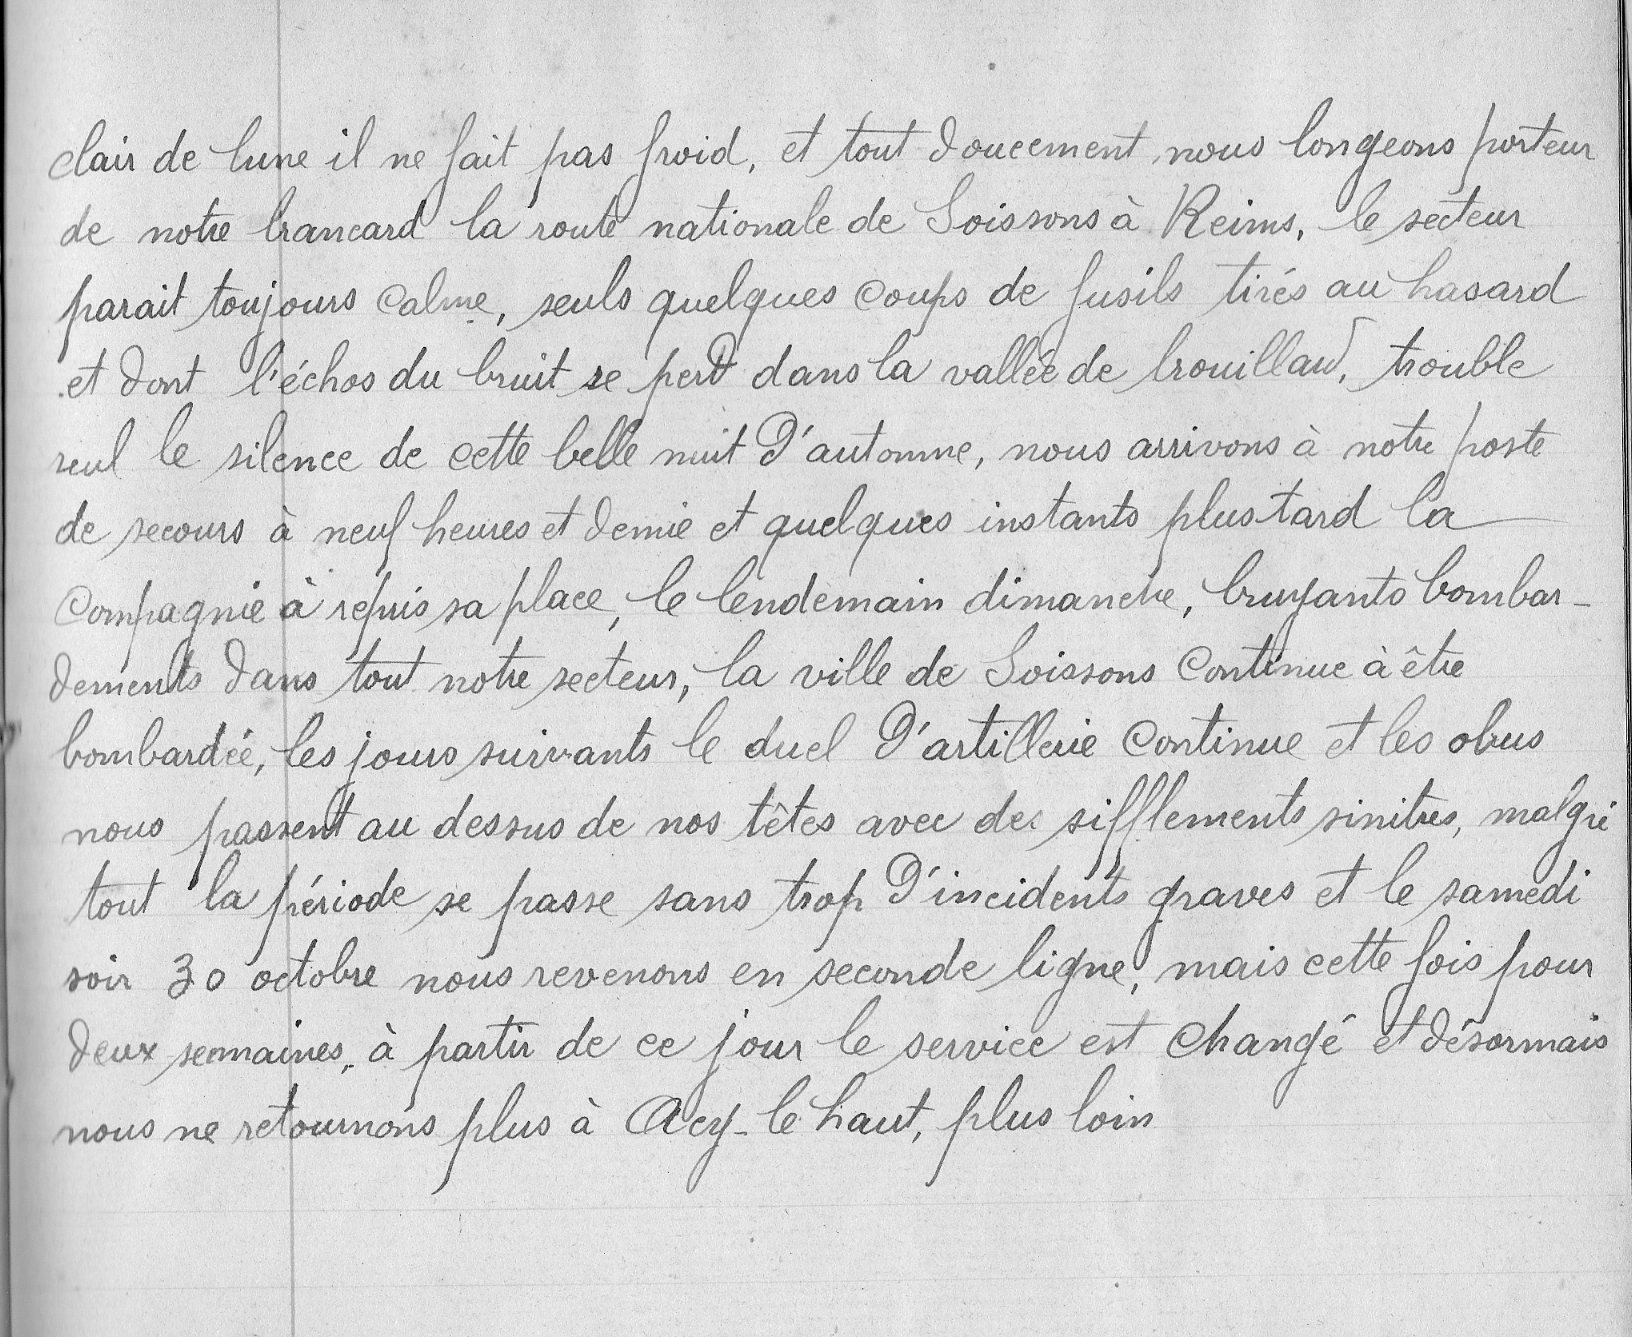 clair de lune il ne fait pas froid, et tout doucement, nous longeons porteur
de notre brancard la route nationale de Soissons à Reims, le secteur
parait toujours calme, seuls quelques coups de fusils tirés au hasard
et dont l'échos du bruit se perd dans la vallée de brouillard, trouble
seul le silence de cette belle nuit d'automne, nous arrivons à notre poste
de secours à neuf heures et demie et quelques instants plus tard la
Compagnie à repris sa place, le lendemain dimanche, bruyants bombar-
dements dans tout notre secteur, la ville de Soissons continue à être
bombardée, les jours suivants le duel d'artillerie continue et les obus
nous passent au dessus de nos têtes avec des sifflements sinitres, malgré
tout la période se passe sans trop d'incidents graves et le samedi
soir 30 octobre nous revenons en seconde ligne, mais cette fois pour
deux semaines, à partir de ce jour le service est changé et désormais
nous ne retournons plus à Acy-le haut, plus loin